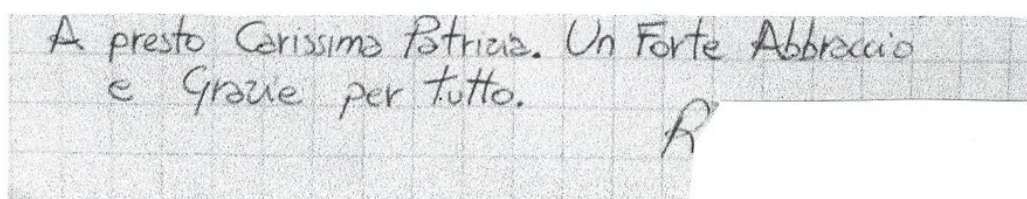 A presto Carissima Patrizia. Un Forte Abbraccio
e Grazie per tutto.
R